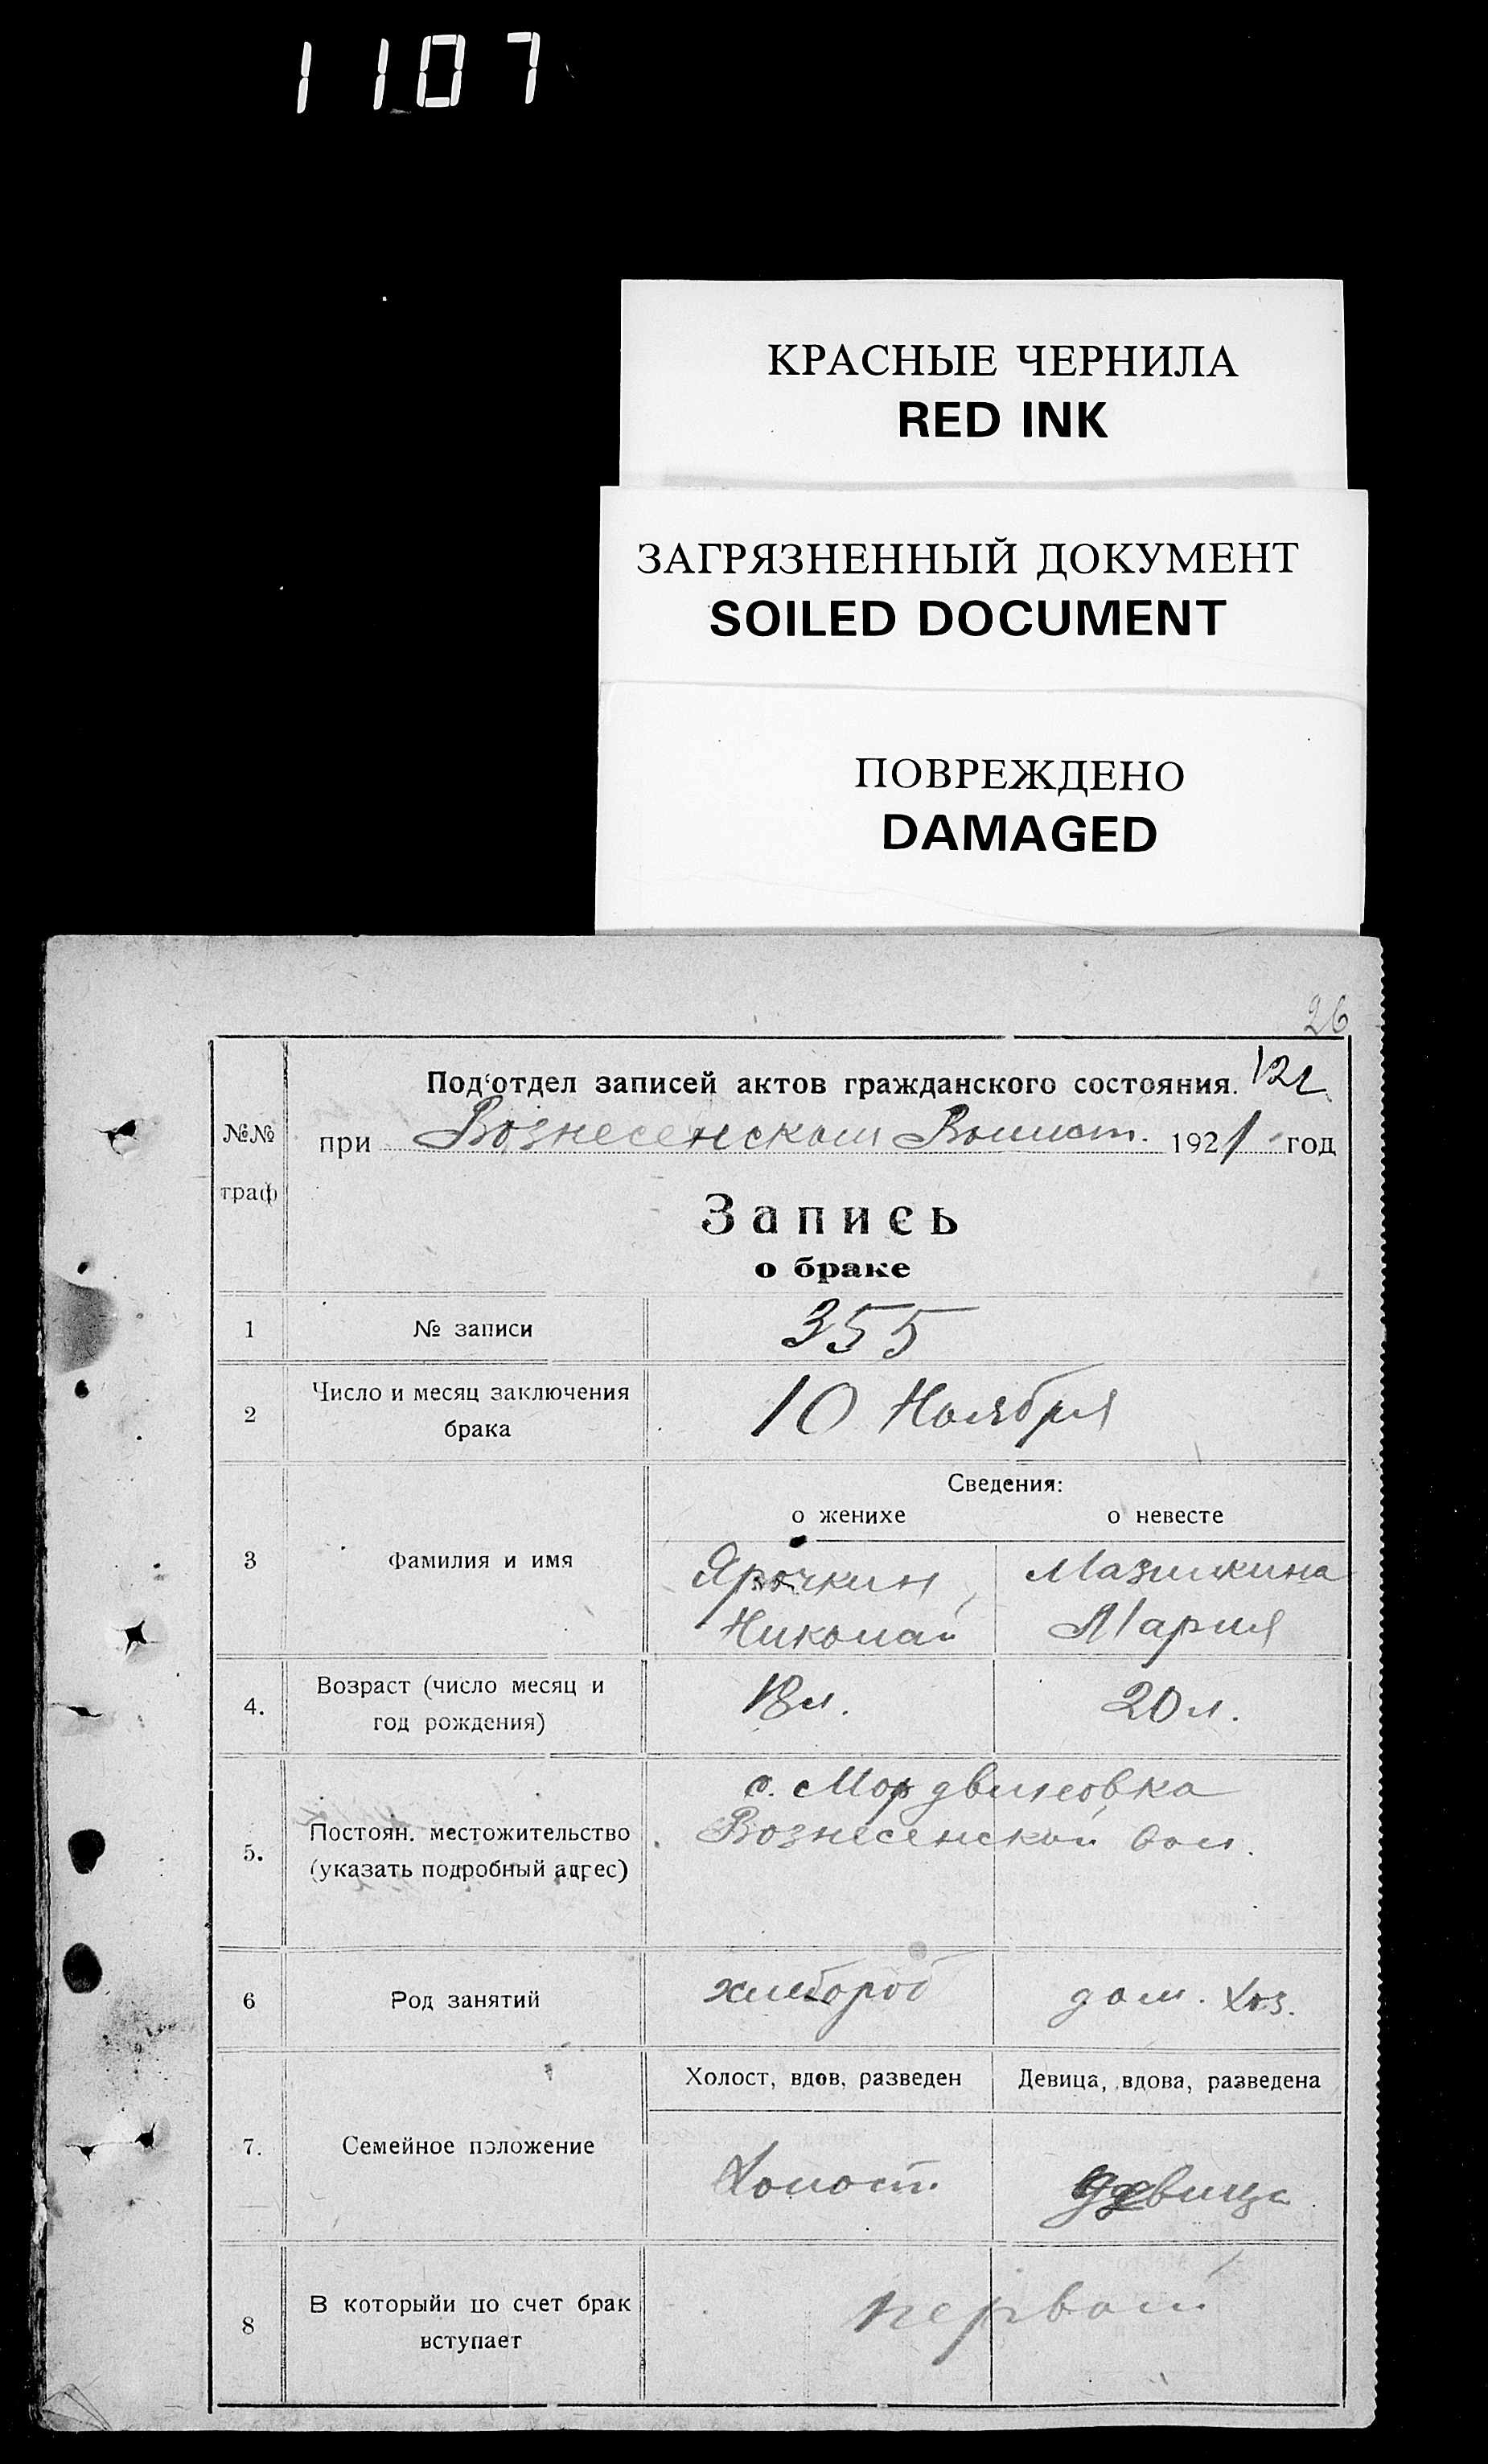 1107
КРАСНЫЕ ЧЕРНИЛА
RED INK
ЗАГРЯЗНЕННЫЙ ДОКУМЕНТ
SOILED DOCUMENT
ПОВРЕЖДЕНО
DAMAGED
26
Под‘отдел записей актов гражданского состояния.
№№
траф
при Вознесенском Волист. 1921 год
Запись
о браке
1 № записи 355
2 Число и месяц заключения
брака
10 Ноября
Сведения:
о женихе о невесте
3 Фамилия и имя
Ярочкин Мазилкина
Николай Мария
4. Возраст (число месяц и
год рождения)
18 л. 20 л.
5. Постоян. местожительство
(указать подробный адрес)
с. Мордвиновка
Вознесенской вол.
6 Род занятий хлебороб дом. хоз.
Холост, вдов, разведен Девица, вдова, разведена
7. Семейное положение
Холост. девица
8 В которыйи по счет брак
вступает
первый